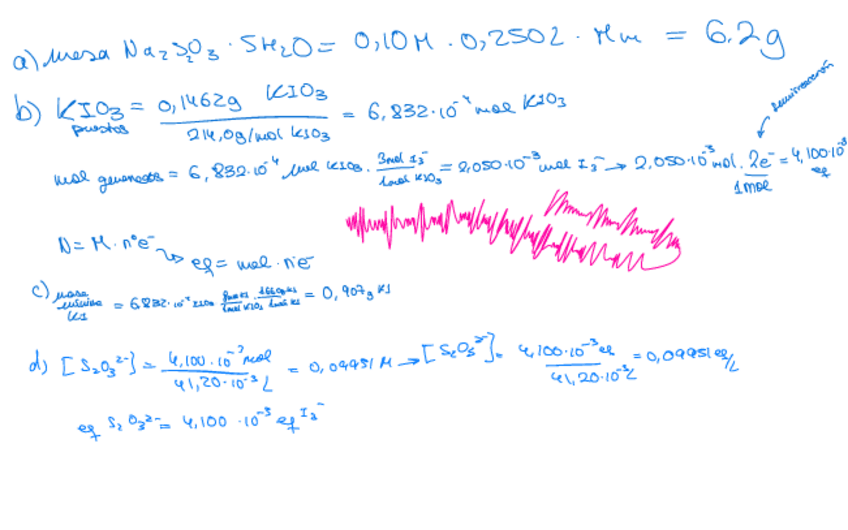 a) masa Na₂S₂O₃ · 5H₂O = 0,10M · 0,250L · Mm = 6.2g
b) KIO₃ puestos = 0,1462g KIO₃ / 214,0g/mol KIO₃ = 6,832·10⁻⁴ mol KIO₃
mol generados = 6,832·10⁻⁴ mol KIO₃ · 3mol I₃⁻ / 1mol KIO₃ = 2,050·10⁻³ mol I₃⁻ → 2,050·10⁻³ mol · 2e⁻ / 1mol = 4,100·10⁻³ eq
N = M · nºe⁻
eq = mol · nºe⁻
c) masa mínima KI = 6,832·10⁻⁴ KIO₃ · 8mol KI / 1mol KIO₃ · 166g KI / 1mol KI = 0,907g KI
d) [S₂O₃²⁻] = 4,100·10⁻³ mol / 41,20·10⁻³ L = 0,09951 M → [S₂O₃²⁻] = 4,100·10⁻³ eq / 41,20·10⁻³ L = 0,09951 eq/L
eq S₂O₃²⁻ = 4,100 · 10⁻³ eq I₃⁻